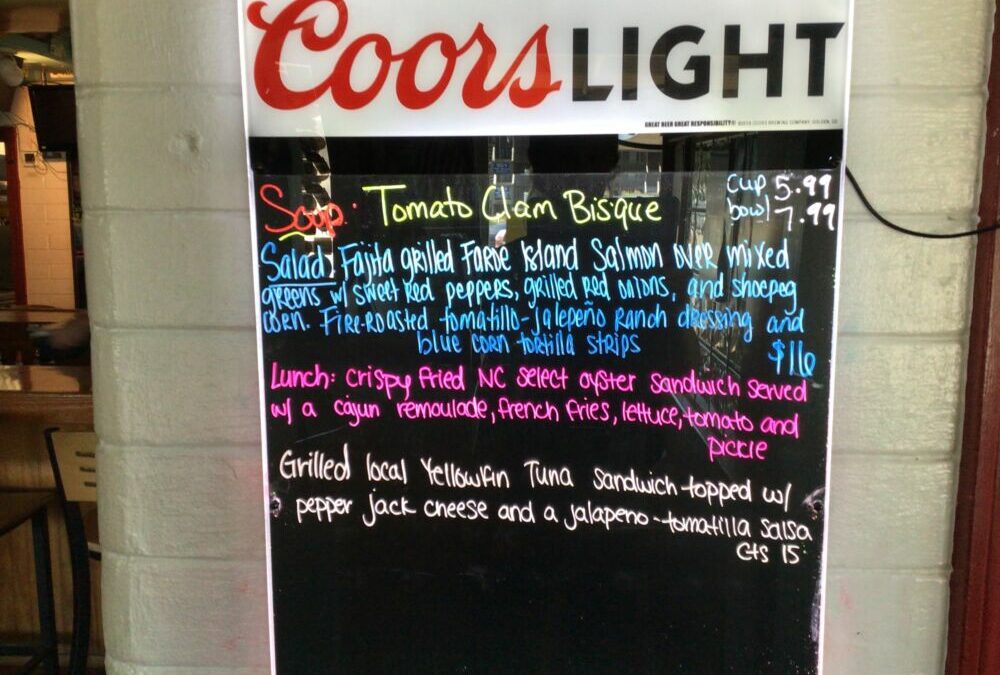 Coors LIGHT
GREAT BEER GREAT RESPONSIBILITY®
Soup: Tomato Clam Bisque cup 5.99
bowl 7.99
Salad: Fajita grilled Faroe Island Salmon over mixed
greens w/ sweet red peppers, grilled red onions, and shoepeg
corn. Fire-roasted tomatillo-jalepeño Ranch dressing and
blue corn tortilla strips $16
Lunch: crispy fried NC select oyster sandwich served
w/ a cajun remoulade, french fries, lettuce, tomato and
pickle
Grilled local Yellowfin Tuna sandwich topped w/
pepper jack cheese and a jalapeno-tomatilla salsa
15